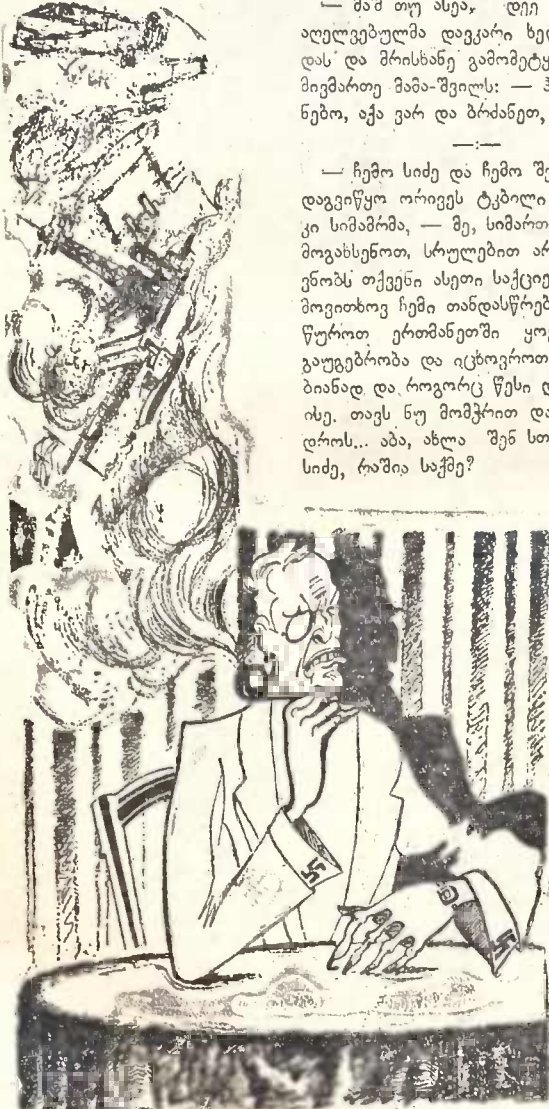 — მაშ თუ ასეა, დეე
აღელვებულმა დავკარი ხელ
დას და მრისხანე გამომეტყ
მივმართე მამა-შვილს: —
ნებო, აქა ვარ და ბრძანეთ,
—:—
— ჩემო სიძე და ჩემო შე
დაგვიწყო ორივეს ტკბილი
კი სიმამრმა, — მე, სიმართ
მოგახსენოთ, სრულებით არ
ვნობს თქვენი ასეთი საქციე
მოვითხოვ ჩემი თანდასწრებ
წუროთ ერთმანეთში ყოვ
გაუგებრობა და იცხოვროთ
ბიანად და როგორც წესი დ
ისე. თავს ნუ მომჭრით და
დროს... აბა, ახლა შენ სთ
სიძე, რაშია საქმე?